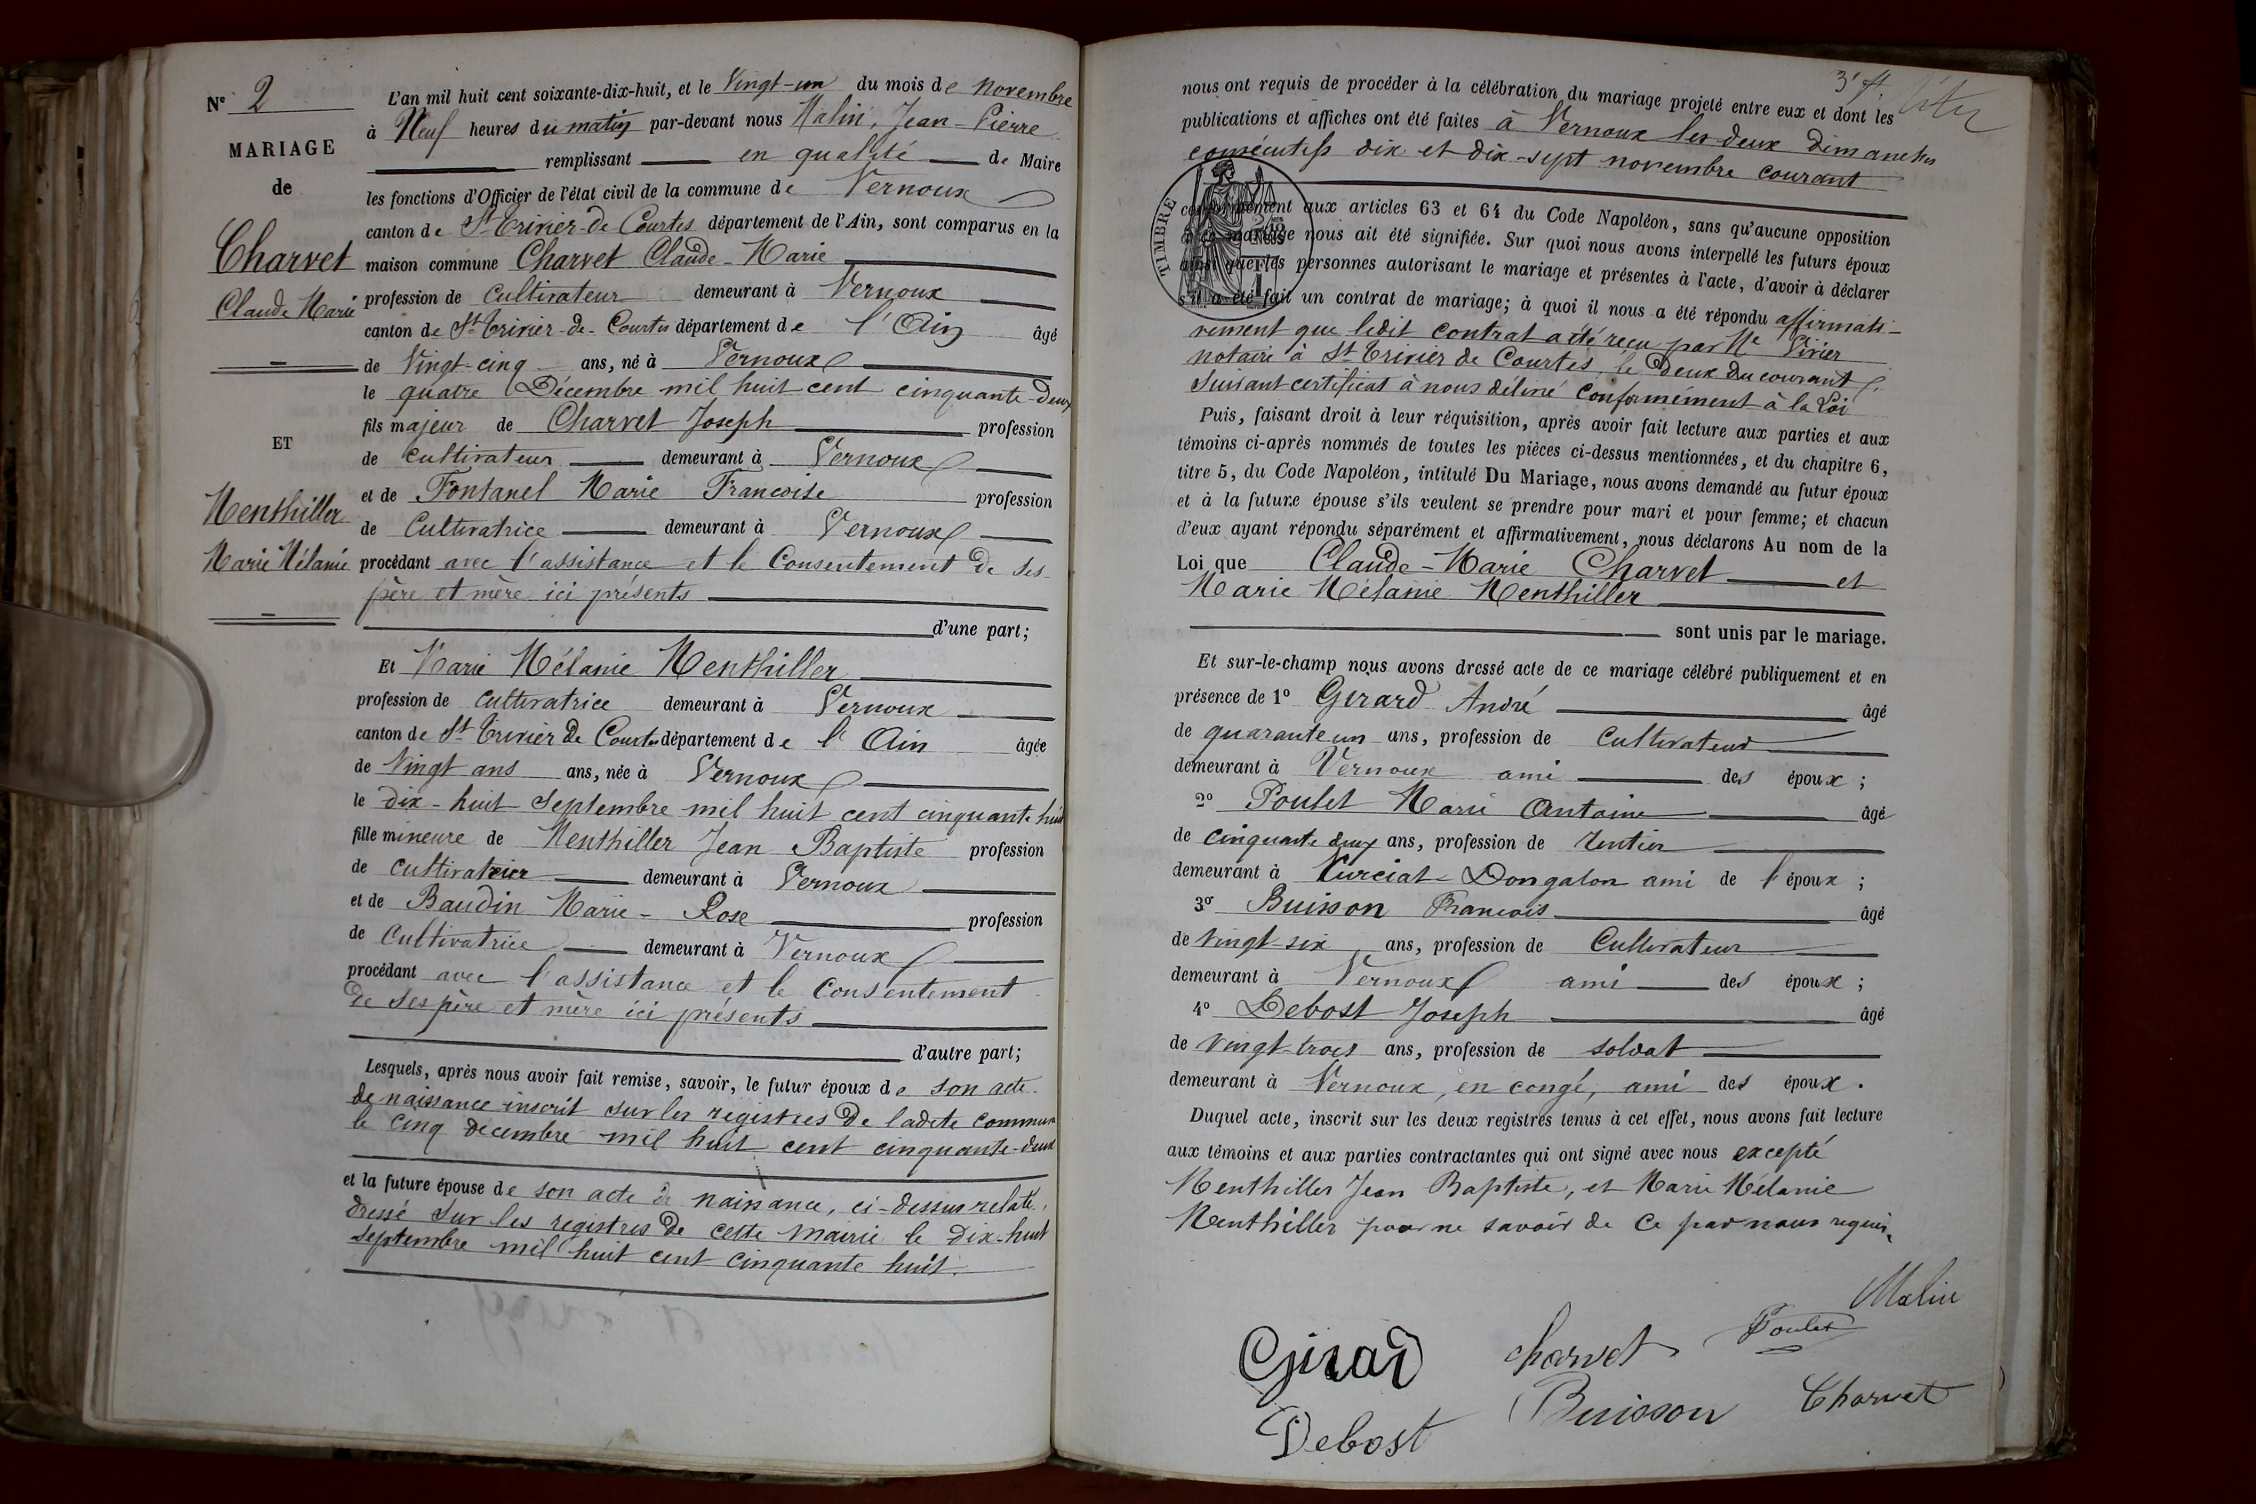 N° 2
MARIAGE
de
Charvet
Claude Marie
ET
Menthiller
Marie Mélanie
L'an mil huit cent soixante-dix-huit, et le Vingt-un du mois de Novembre
à Neuf heures du matin par-devant nous Malin, Jean-Pierre
remplissant en qualité de Maire
les fonctions d'Officier de l'état civil de la commune de Vernoux
canton de St Trivier-de Courtes département de l'Ain, sont comparus en la
maison commune Charvet Claude-Marie
profession de cultivateur demeurant à Vernoux
canton de St Trivier-de-Courtes département de l'Ain âgé
de Vingt-cinq ans, né à Vernoux
le quatre Décembre mil huit cent cinquante-deux
fils majeur de Charvet Joseph profession
de cultivateur demeurant à Vernoux
et de Fontanel Marie Francoise profession
de Cultivatrice demeurant à Vernoux
procédant avec l'assistance et le Consentement de ses
père et mère ici présents
d'une part;
Et Marie Mélanie Menthiller
profession de cultivatrice demeurant à Vernoux
canton de St Trivier de Courtes département de l'Ain âgée
de Vingt ans ans, née à Vernoux
le dix-huit Septembre mil huit cent cinquante huit
fille mineure de Menthiller Jean Baptiste profession
de cultivateur demeurant à Vernoux
et de Baudin Marie-Rose profession
de Cultivatrice demeurant à Vernoux
procédant avec l'assistance et le Consentement
de ses père et mère ici présents
d'autre part;
Lesquels, après nous avoir fait remise, savoir, le futur époux de son acte
de naissance inscrit sur les registres de ladite commune
le cinq decembre mil huit cent cinquante-deux
et la future épouse de son acte de naissance, ci-dessus relaté,
dressé sur les registres de cette mairie le dix-huit
septembre mil huit cent cinquante huit.
3e ft.
nous ont requis de procéder à la célébration du mariage projeté entre eux et dont les
publications et affiches ont été faites à Vernoux les deux dimanches
consécutifs dix et dix-sept novembre courant
TIMBRE
conformément aux articles 63 et 64 du Code Napoléon, sans qu'aucune opposition
à ce mariage nous ait été signifiée. Sur quoi nous avons interpellé les futurs époux
ainsi que les personnes autorisant le mariage et présentes à l'acte, d'avoir à déclarer
s'il a été fait un contrat de mariage; à quoi il nous a été répondu affirmati-
vement que ledit contrat a été reçu par Me Vivier
notaire à St Trivier de Courtes, le deux du courant
suivant certificat à nous délivré conformément à la Loi
Puis, faisant droit à leur réquisition, après avoir fait lecture aux parties et aux
témoins ci-après nommés de toutes les pièces ci-dessus mentionnées, et du chapitre 6,
titre 5, du Code Napoléon, intitulé Du Mariage, nous avons demandé au futur époux
et à la future épouse s'ils veulent se prendre pour mari et pour femme; et chacun
d'eux ayant répondu séparément et affirmativement, nous déclarons Au nom de la
Loi que Claude-Marie Charvet et
Marie Mélanie Menthiller
sont unis par le mariage.
Et sur-le-champ nous avons dressé acte de ce mariage célébré publiquement et en
présence de 1° Girard André âgé
de quarante un ans, profession de Cultivateur
demeurant à Vernoux ami des époux;
2° Poulet Marie Antoine âgé
de cinquante deux ans, profession de rentier
demeurant à Curciat-Dongalon ami de l'époux;
3° Buisson Francois âgé
de vingt-six ans, profession de Cultivateur
demeurant à Vernoux ami des époux;
4° Debost Joseph âgé
de vingt-trois ans, profession de soldat
demeurant à Vernoux, en congé, ami des époux.
Duquel acte, inscrit sur les deux registres tenus à cet effet, nous avons fait lecture
aux témoins et aux parties contractantes qui ont signé avec nous excepté
Menthiller Jean Baptiste, et Marie Mélanie
Menthiller pour ne savoir de ce par nous requis.
Malin
Girard Charvet Poulet
Debost Buisson Charvet